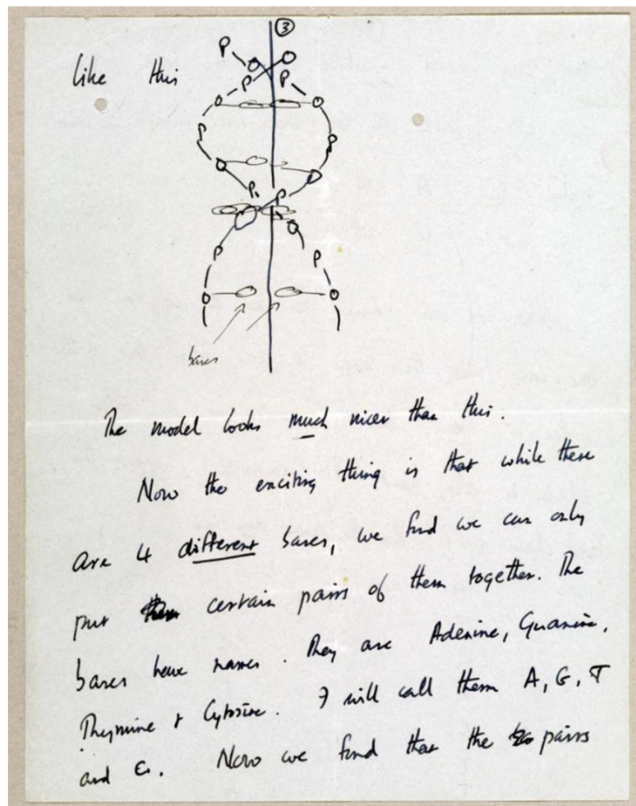 ③
like this
P O
P P
O O
P P
O O
P P
O O
P P
O O
bases
The model looks much nicer than this.
Now the exciting thing is that while there
are 4 different bases, we find we can only
put certain pairs of them together. The
bases have names. They are Adenine, Guanine,
Thymine & Cytosine. I will call them A, G, T
and C. Now we find that the pairs